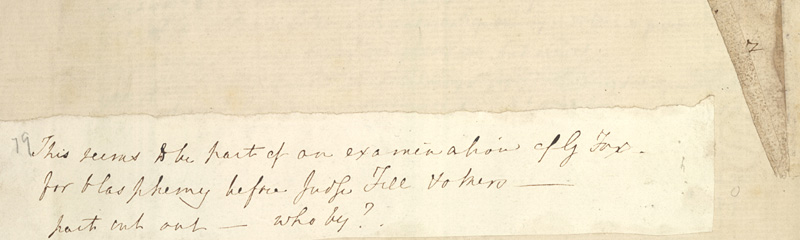 2
79
This seems to be part of an examination of G Fox.
for blasphemy before Judge Fell & others —
part cut out — who by?